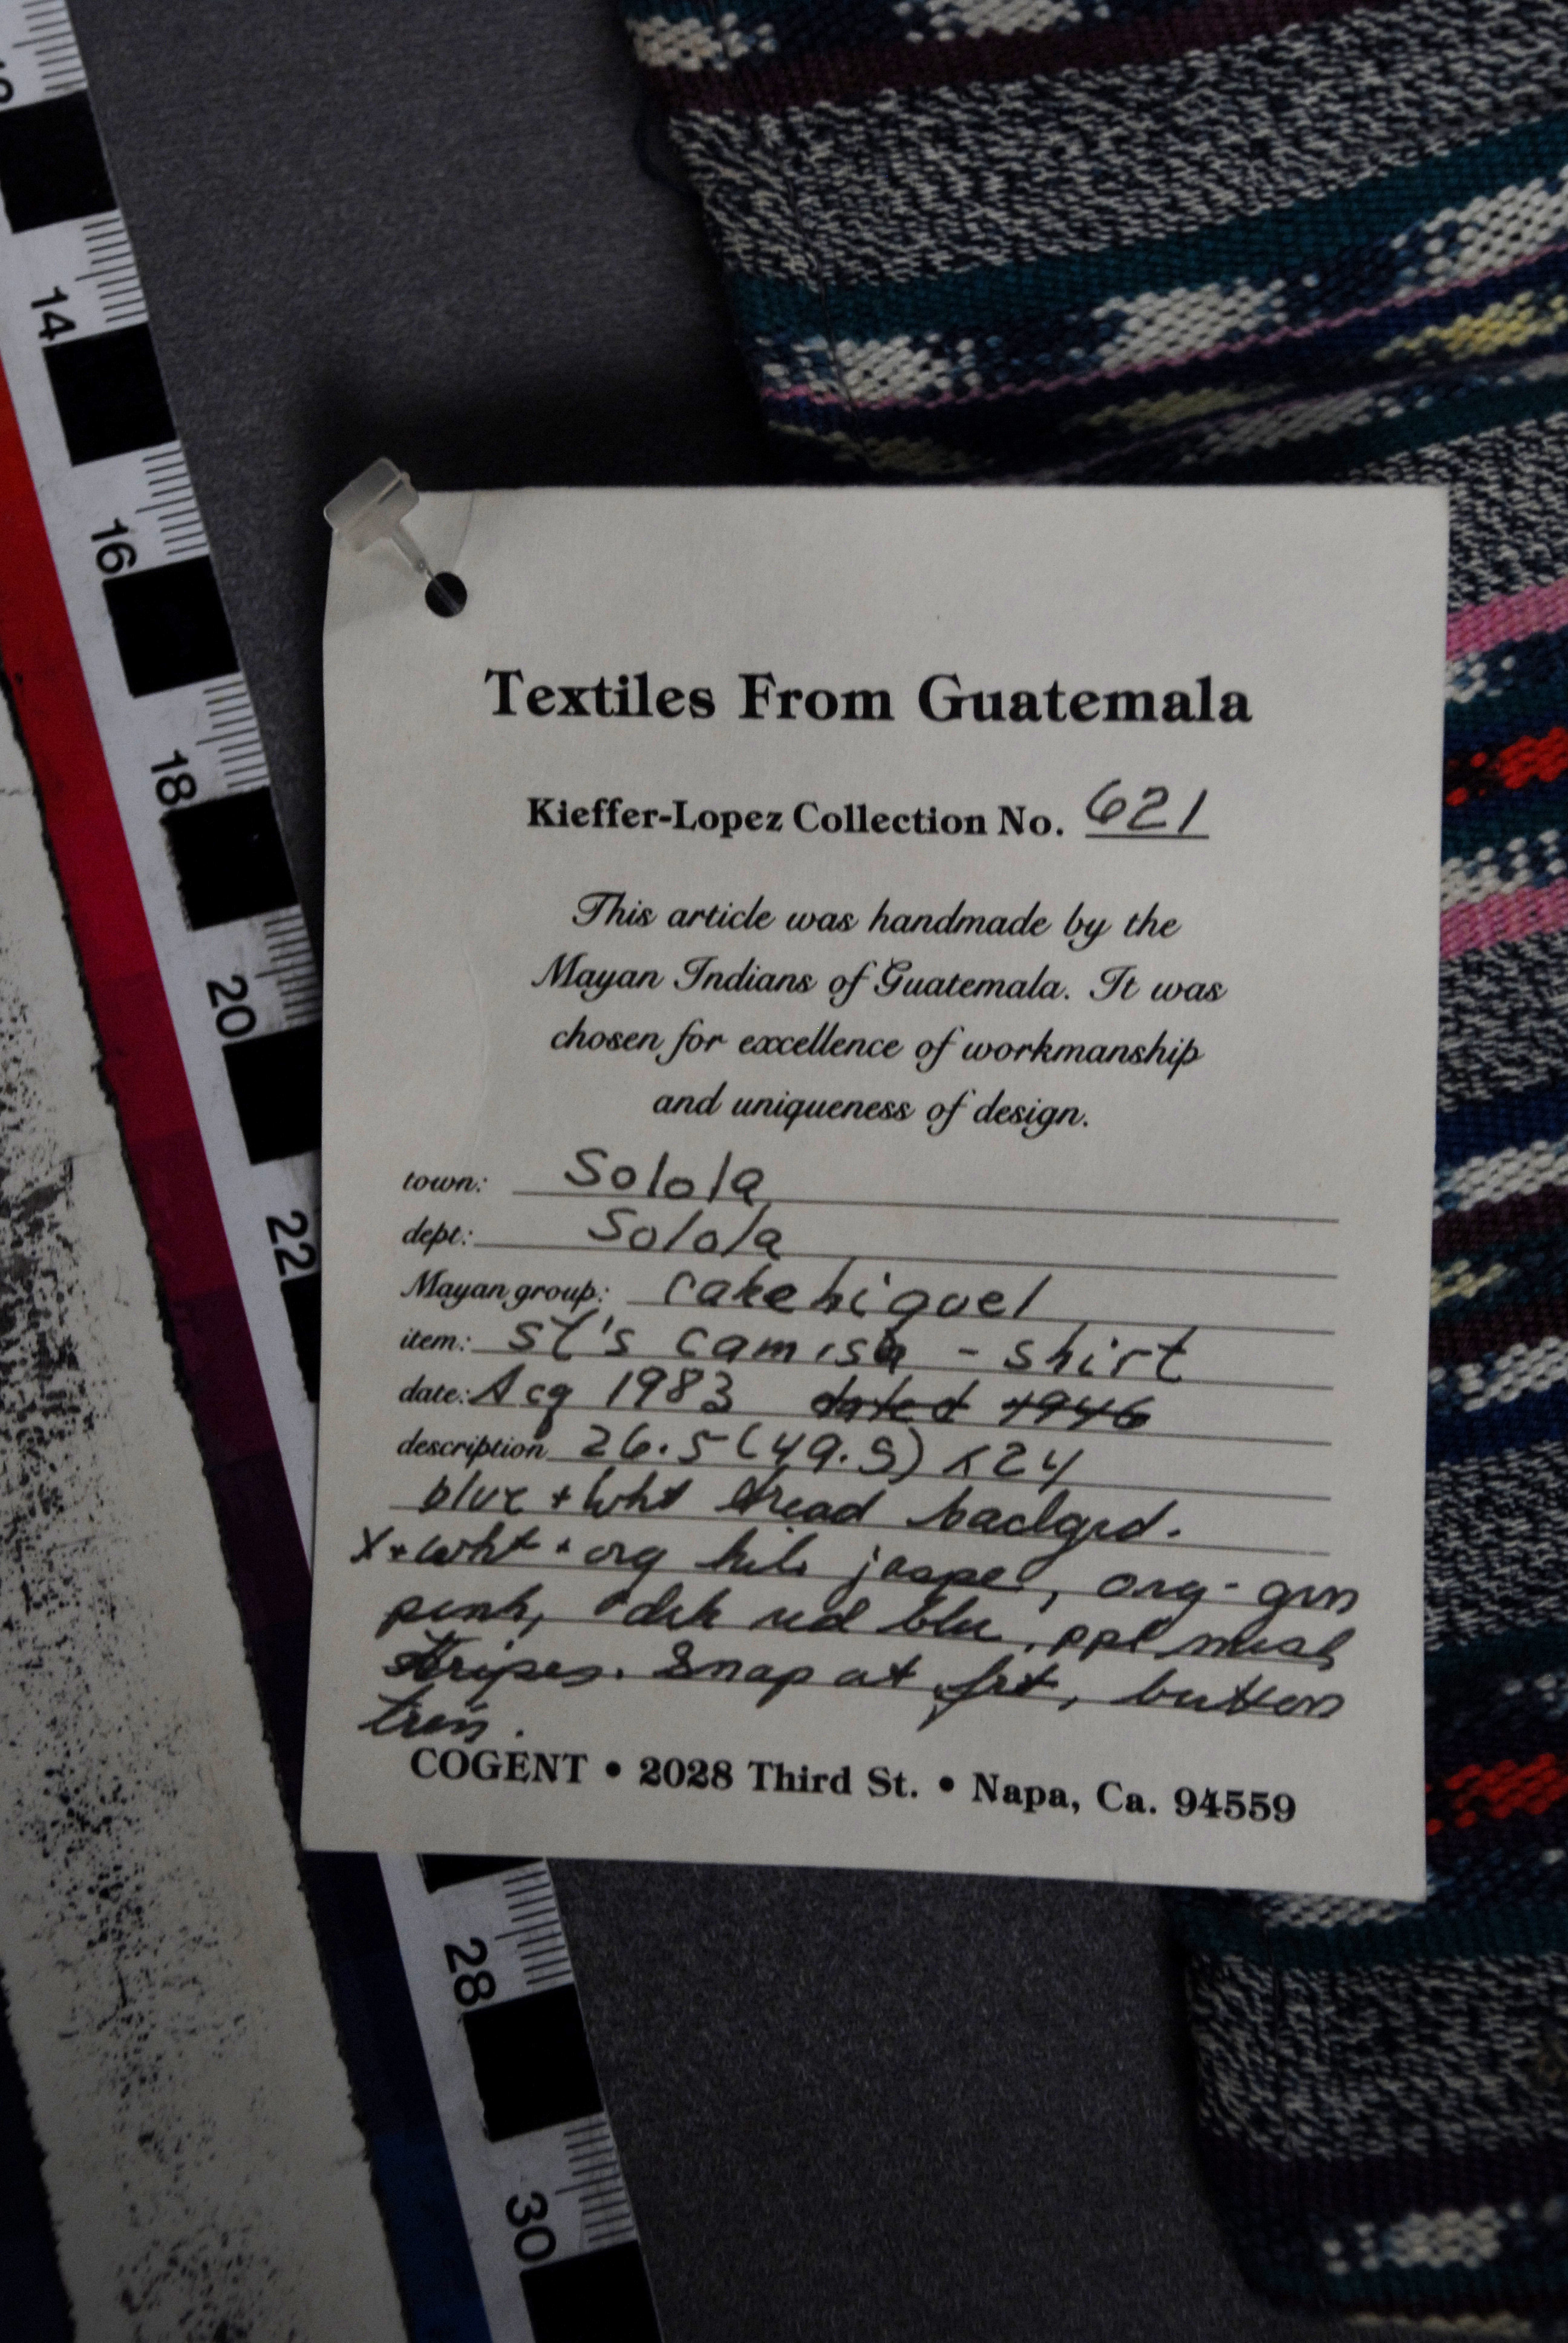 14
16
18
20
22
28
30
Textiles From Guatemala
Kieffer-Lopez Collection No. 621
This article was handmade by the
Mayan Indians of Guatemala. It was
chosen for excellence of workmanship
and uniqueness of design.
town: Solola
dept: Solola
Mayan group: Cakchiquel
item: camisa - shirt
date: Acq 1983 dated 1946
description 26.5 (49.5) x 24
blue + wht thread
+ wht + org jaspe, org - grn
pink, drk red blu, ppl
stripes. Snap at frt, button
COGENT • 2028 Third St. • Napa, Ca. 94559